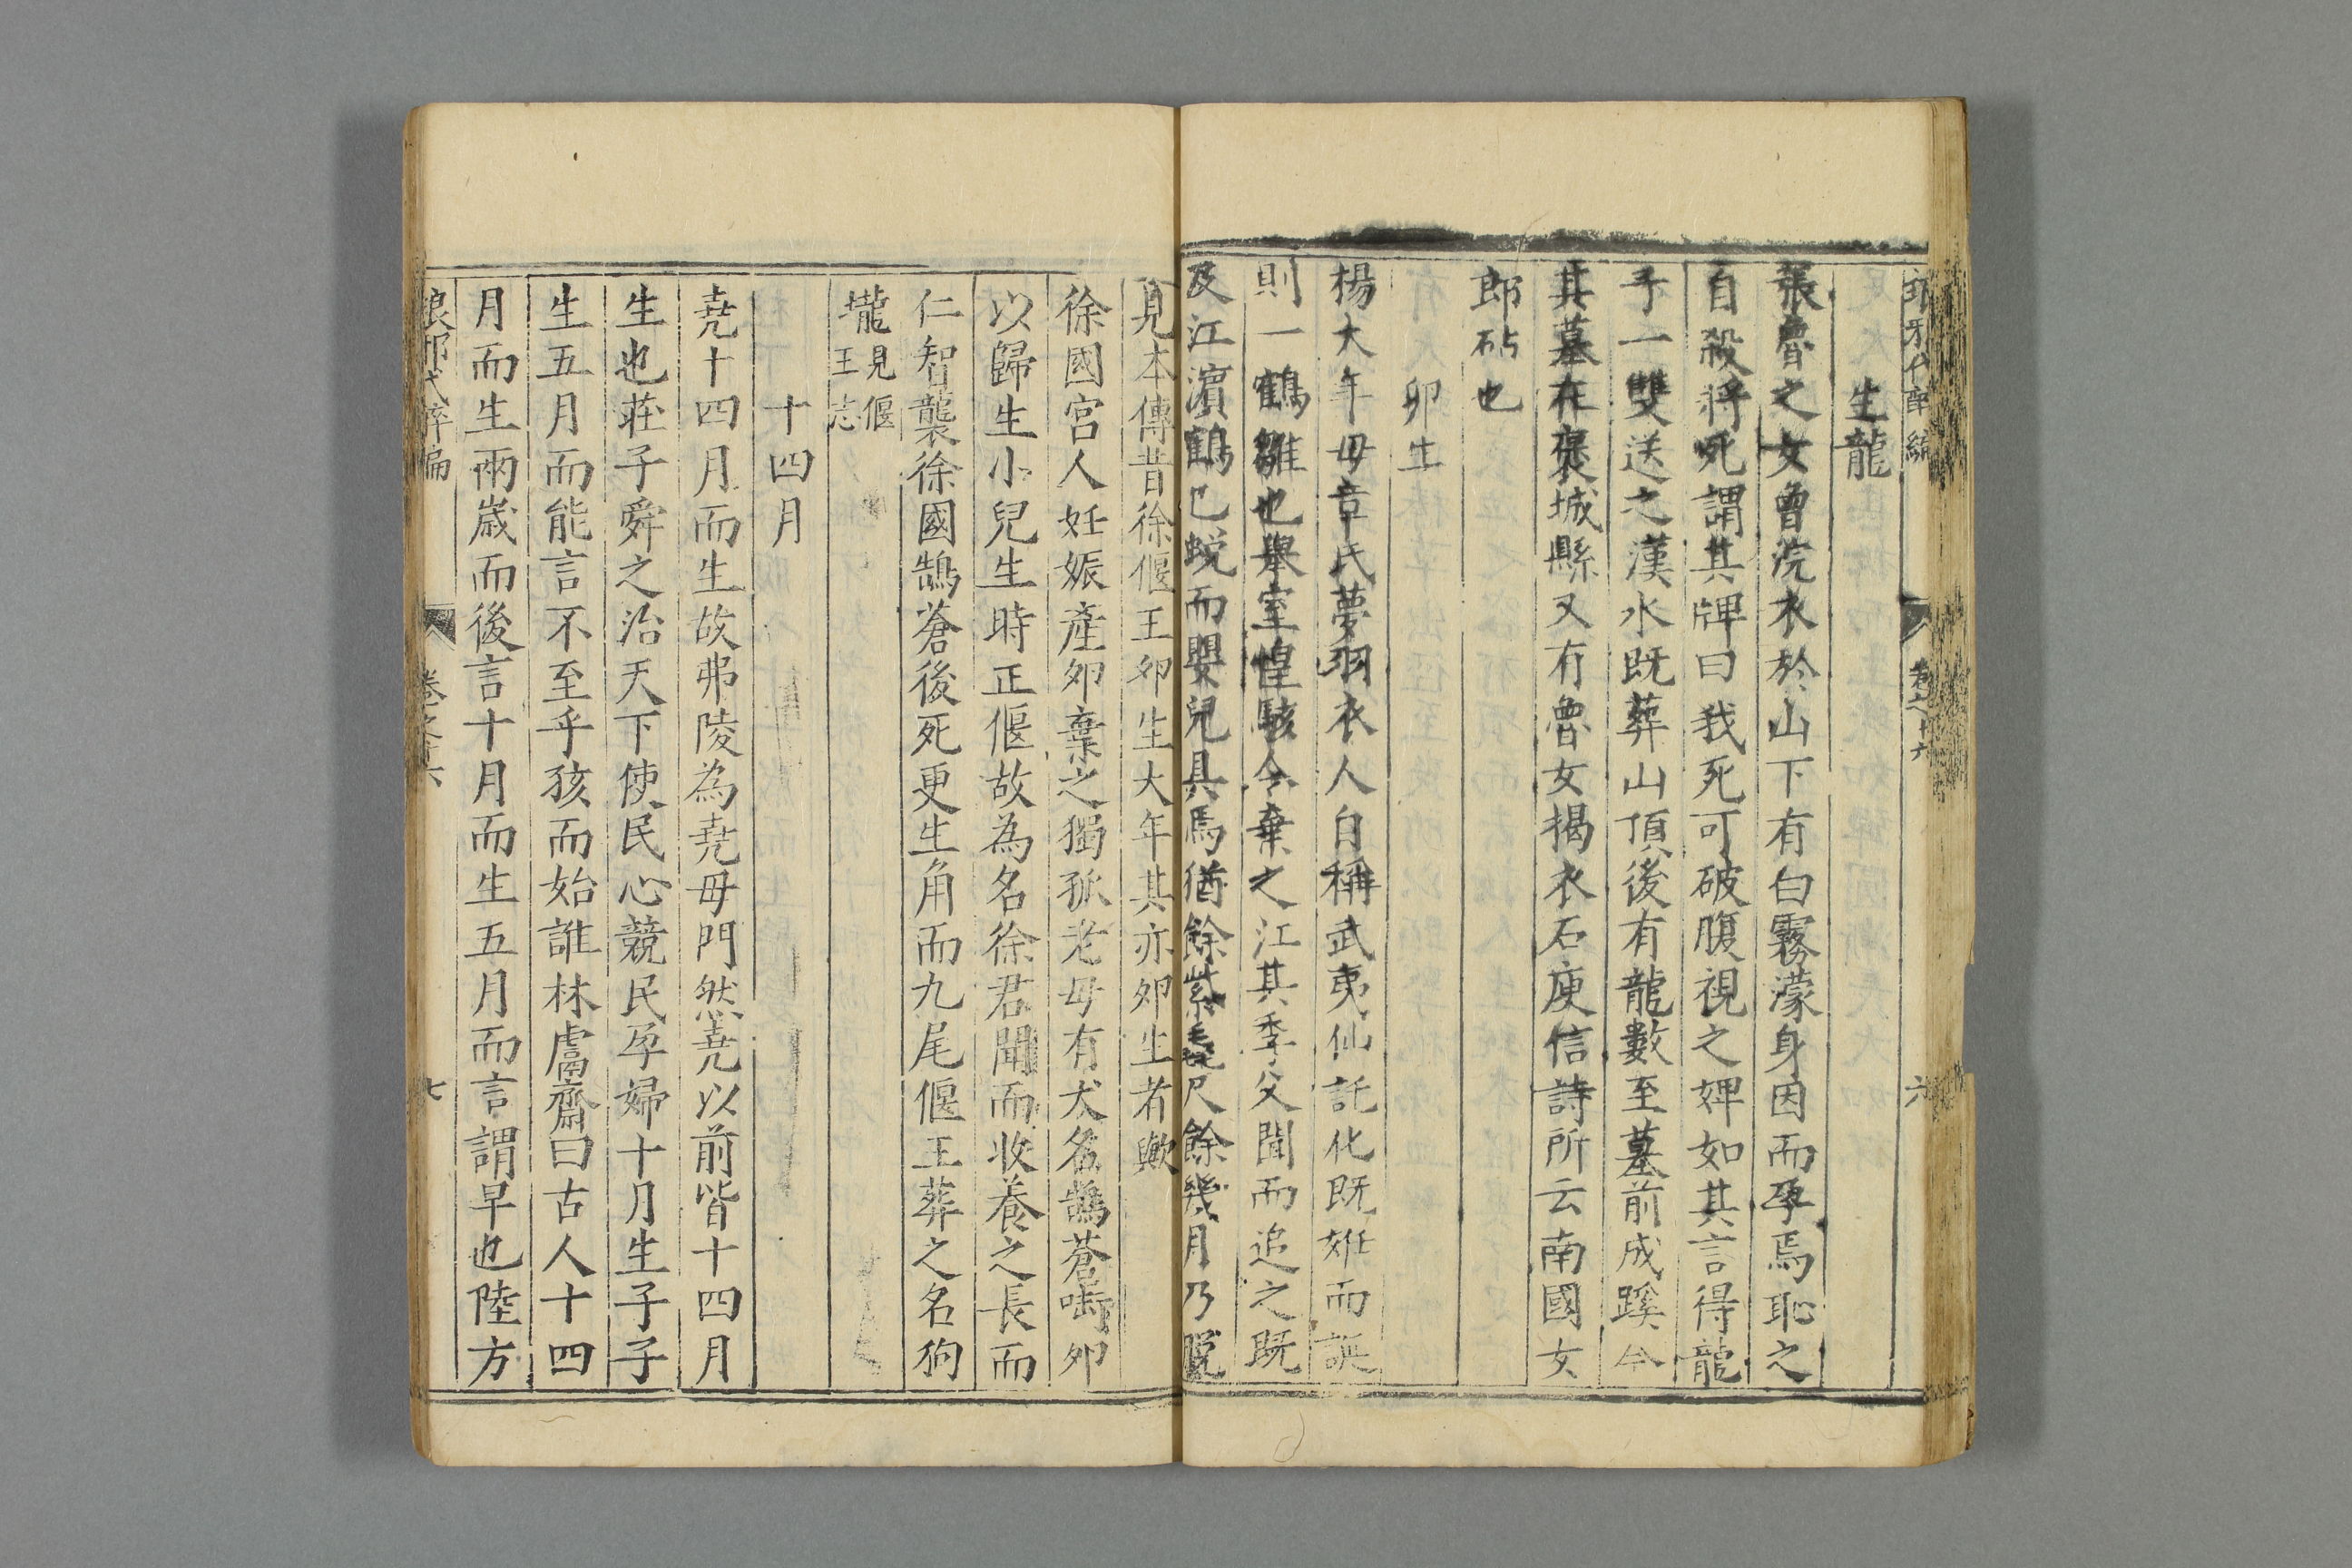 卷之十六
六
生龍
張魯之女曾浣衣於山下有白霧濛身因而孕焉恥之
自殺將死謂其婢曰我死可破腹視之婢如其言得龍
子一雙送之漢水既葬山頂後有龍數至墓前成蹊今
其墓在褒城縣又有魯女搗衣石庾信詩所云南國女
郎砧也
卵生
楊大年母章氏夢羽衣人自稱武夷仙託化既姙而誕
則一鶴雛也舉室惶駭令棄之江其季父聞而追之既
及江濵鶴已蛻而嬰兒具焉猶餘紫毳尺餘幾月乃脫
見本傳昔徐偃王夘生大年其亦夘生者歟
徐國宮人妊娠產夘棄之獨孤老母有犬名鵠蒼啣夘
以歸生小兒生時正偃故為名徐君聞而收養之長而
仁智襲徐國鵠蒼後死更生角而九尾偃王葬之名狗
壠見偃王志
十四月
堯十四月而生故弗陵為堯母門然堯以前皆十四月
生也莊子舜之治天下使民心競民孕婦十月生子子
生五月而能言不至乎孩而始誰林鬳齋曰古人十四
月而生兩歲而後言十月而生五月而言謂早也陸方
琅邪代醉編
卷之十六
七